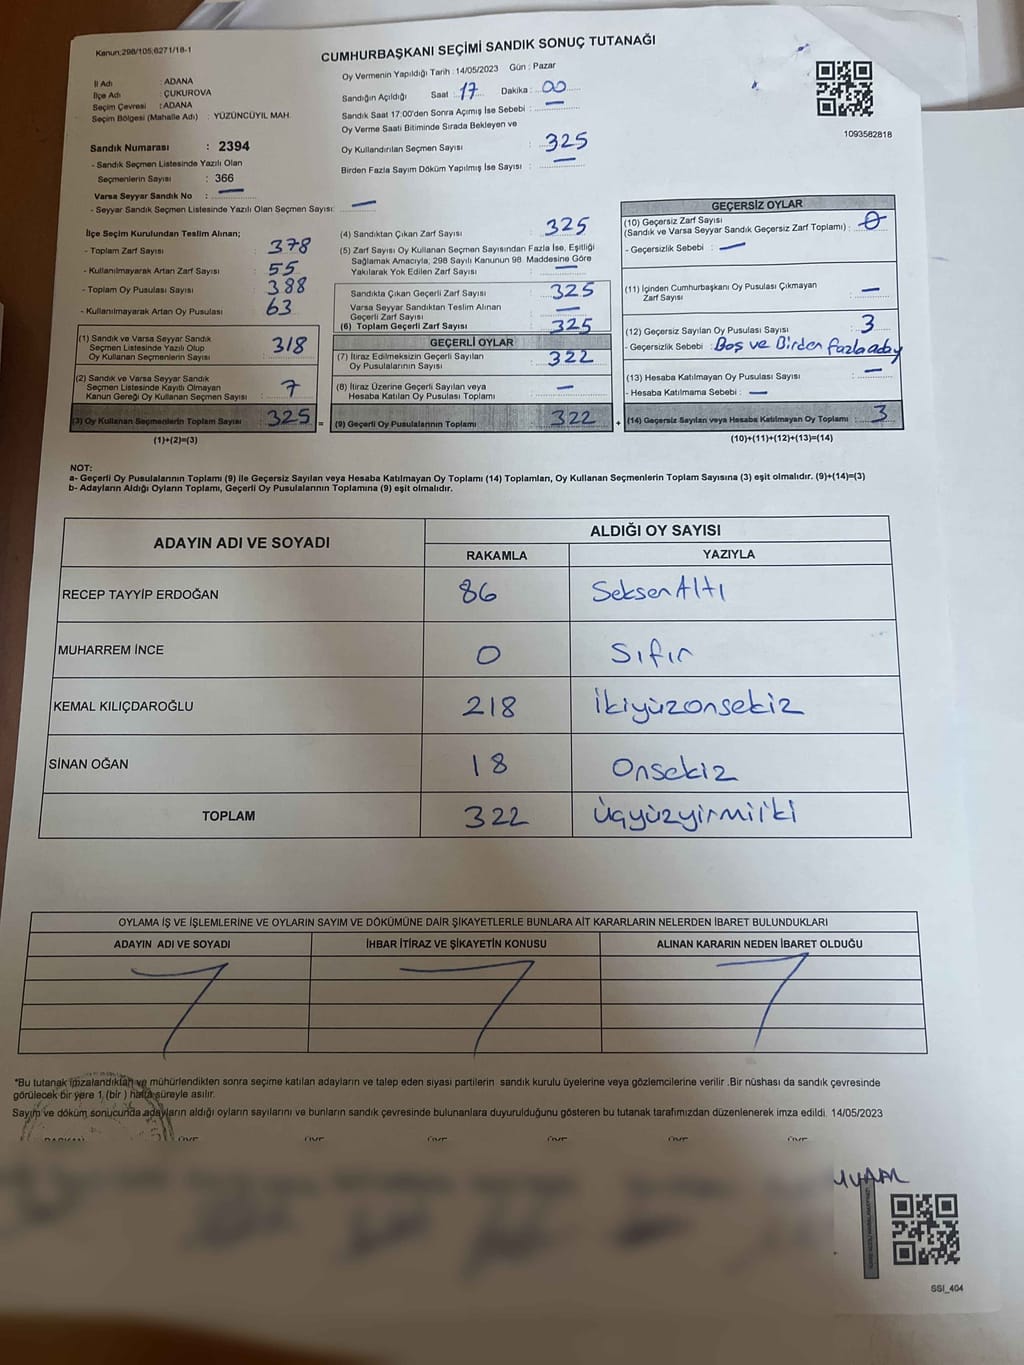 Kanun:298/105;6271/18-1
CUMHURBAŞKANI SEÇİMİ SANDIK SONUÇ TUTANAĞI
İl Adı : ADANA
İlçe Adı : ÇUKUROVA
Seçim Çevresi : ADANA
Seçim Bölgesi (Mahalle Adı) : YÜZÜNCÜYIL MAH.
Sandık Numarası : 2394
- Sandık Seçmen Listesinde Yazılı Olan
Seçmenlerin Sayısı : 366
Varsa Seyyar Sandık No : —
- Seyyar Sandık Seçmen Listesinde Yazılı Olan Seçmen Sayısı: —
Oy Vermenin Yapıldığı Tarih : 14/05/2023 Gün : Pazar
Sandığın Açıldığı Saat : 17 Dakika : 00
Sandık Saat 17:00'den Sonra Açımış İse Sebebi : —
Oy Verme Saati Bitiminde Sırada Bekleyen ve
Oy Kullandırılan Seçmen Sayısı : 325
Birden Fazla Sayım Döküm Yapılmış İse Sayısı : —
1093582818
İlçe Seçim Kurulundan Teslim Alınan;
- Toplam Zarf Sayısı : 378
- Kullanılmayarak Artan Zarf Sayısı : 55
- Toplam Oy Pusulası Sayısı : 388
- Kullanılmayarak Artan Oy Pusulası : 63
(1) Sandık ve Varsa Seyyar Sandık
Seçmen Listesinde Yazılı Olup
Oy Kullanan Seçmenlerin Sayısı : 318
(2) Sandık ve Varsa Seyyar Sandık
Seçmen Listesinde Kayıtlı Olmayan
Kanun Gereği Oy Kullanan Seçmen Sayısı : 7
(3) Oy Kullanan Seçmenlerin Toplam Sayısı : 325
(1)+(2)=(3)
(4) Sandıktan Çıkan Zarf Sayısı : 325
(5) Zarf Sayısı Oy Kullanan Seçmen Sayısından Fazla İse, Eşitliği
Sağlamak Amacıyla; 298 Sayılı Kanunun 98. Maddesine Göre
Yakılarak Yok Edilen Zarf Sayısı : —
Sandıkta Çıkan Geçerli Zarf Sayısı : 325
Varsa Seyyar Sandıktan Teslim Alınan
Geçerli Zarf Sayısı : —
(6) Toplam Geçerli Zarf Sayısı : 325
GEÇERLİ OYLAR
(7) İtiraz Edilmeksizin Geçerli Sayılan
Oy Pusulalarının Sayısı : 322
(8) İtiraz Üzerine Geçerli Sayılan veya
Hesaba Katılan Oy Pusulası Toplamı : —
= (9) Geçerli Oy Pusulalarının Toplamı : 322
GEÇERSİZ OYLAR
(10) Geçersiz Zarf Sayısı
(Sandık ve Varsa Seyyar Sandık Geçersiz Zarf Toplamı) : 0
- Geçersizlik Sebebi : —
(11) İçinden Cumhurbaşkanı Oy Pusulası Çıkmayan
Zarf Sayısı : —
(12) Geçersiz Sayılan Oy Pusulası Sayısı : 3
- Geçersizlik Sebebi : Boş ve Birden fazla aday
(13) Hesaba Katılmayan Oy Pusulası Sayısı : —
- Hesaba Katılmama Sebebi : —
+ (14) Geçersiz Sayılan veya Hesaba Katılmayan Oy Toplamı : 3
(10)+(11)+(12)+(13)=(14)
NOT:
a- Geçerli Oy Pusulalarının Toplamı (9) ile Geçersiz Sayılan veya Hesaba Katılmayan Oy Toplamı (14) Toplamları, Oy Kullanan Seçmenlerin Toplam Sayısına (3) eşit olmalıdır. (9)+(14)=(3)
b- Adayların Aldığı Oyların Toplamı, Geçerli Oy Pusulalarının Toplamına (9) eşit olmalıdır.
ADAYIN ADI VE SOYADI
ALDIĞI OY SAYISI
RAKAMLA YAZIYLA
RECEP TAYYİP ERDOĞAN 86 Seksen Altı
MUHARREM İNCE 0 Sıfır
KEMAL KILIÇDAROĞLU 218 İkiyüzonsekiz
SİNAN OĞAN 18 Onsekiz
TOPLAM 322 Üçyüzyirmiiki
OYLAMA İŞ VE İŞLEMLERİNE VE OYLARIN SAYIM VE DÖKÜMÜNE DAİR ŞİKAYETLERLE BUNLARA AİT KARARLARIN NELERDEN İBARET BULUNDUKLARI
ADAYIN ADI VE SOYADI İHBAR İTİRAZ VE ŞİKAYETİN KONUSU ALINAN KARARIN NEDEN İBARET OLDUĞU
*Bu tutanak imzalandıktan ve mühürlendikten sonra seçime katılan adayların ve talep eden siyasi partilerin sandık kurulu üyelerine veya gözlemcilerine verilir .Bir nüshası da sandık çevresinde
görülecek bir yere 1 (bir ) hafta süreyle asılır.
Sayım ve döküm sonucunda adayların aldığı oyların sayılarını ve bunların sandık çevresinde bulunanlara duyurulduğunu gösteren bu tutanak tarafımızdan düzenlenerek imza edildi. 14/05/2023
BAŞKAN ÜYE ÜYE ÜYE ÜYE ÜYE ÜYE
SSI_404